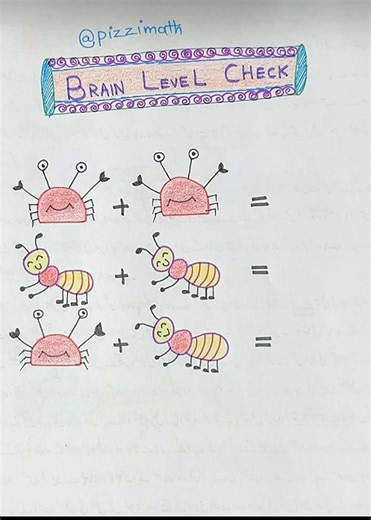 @pizzimath
BRAIN LEVEL CHECK
+ =
+ =
+ =